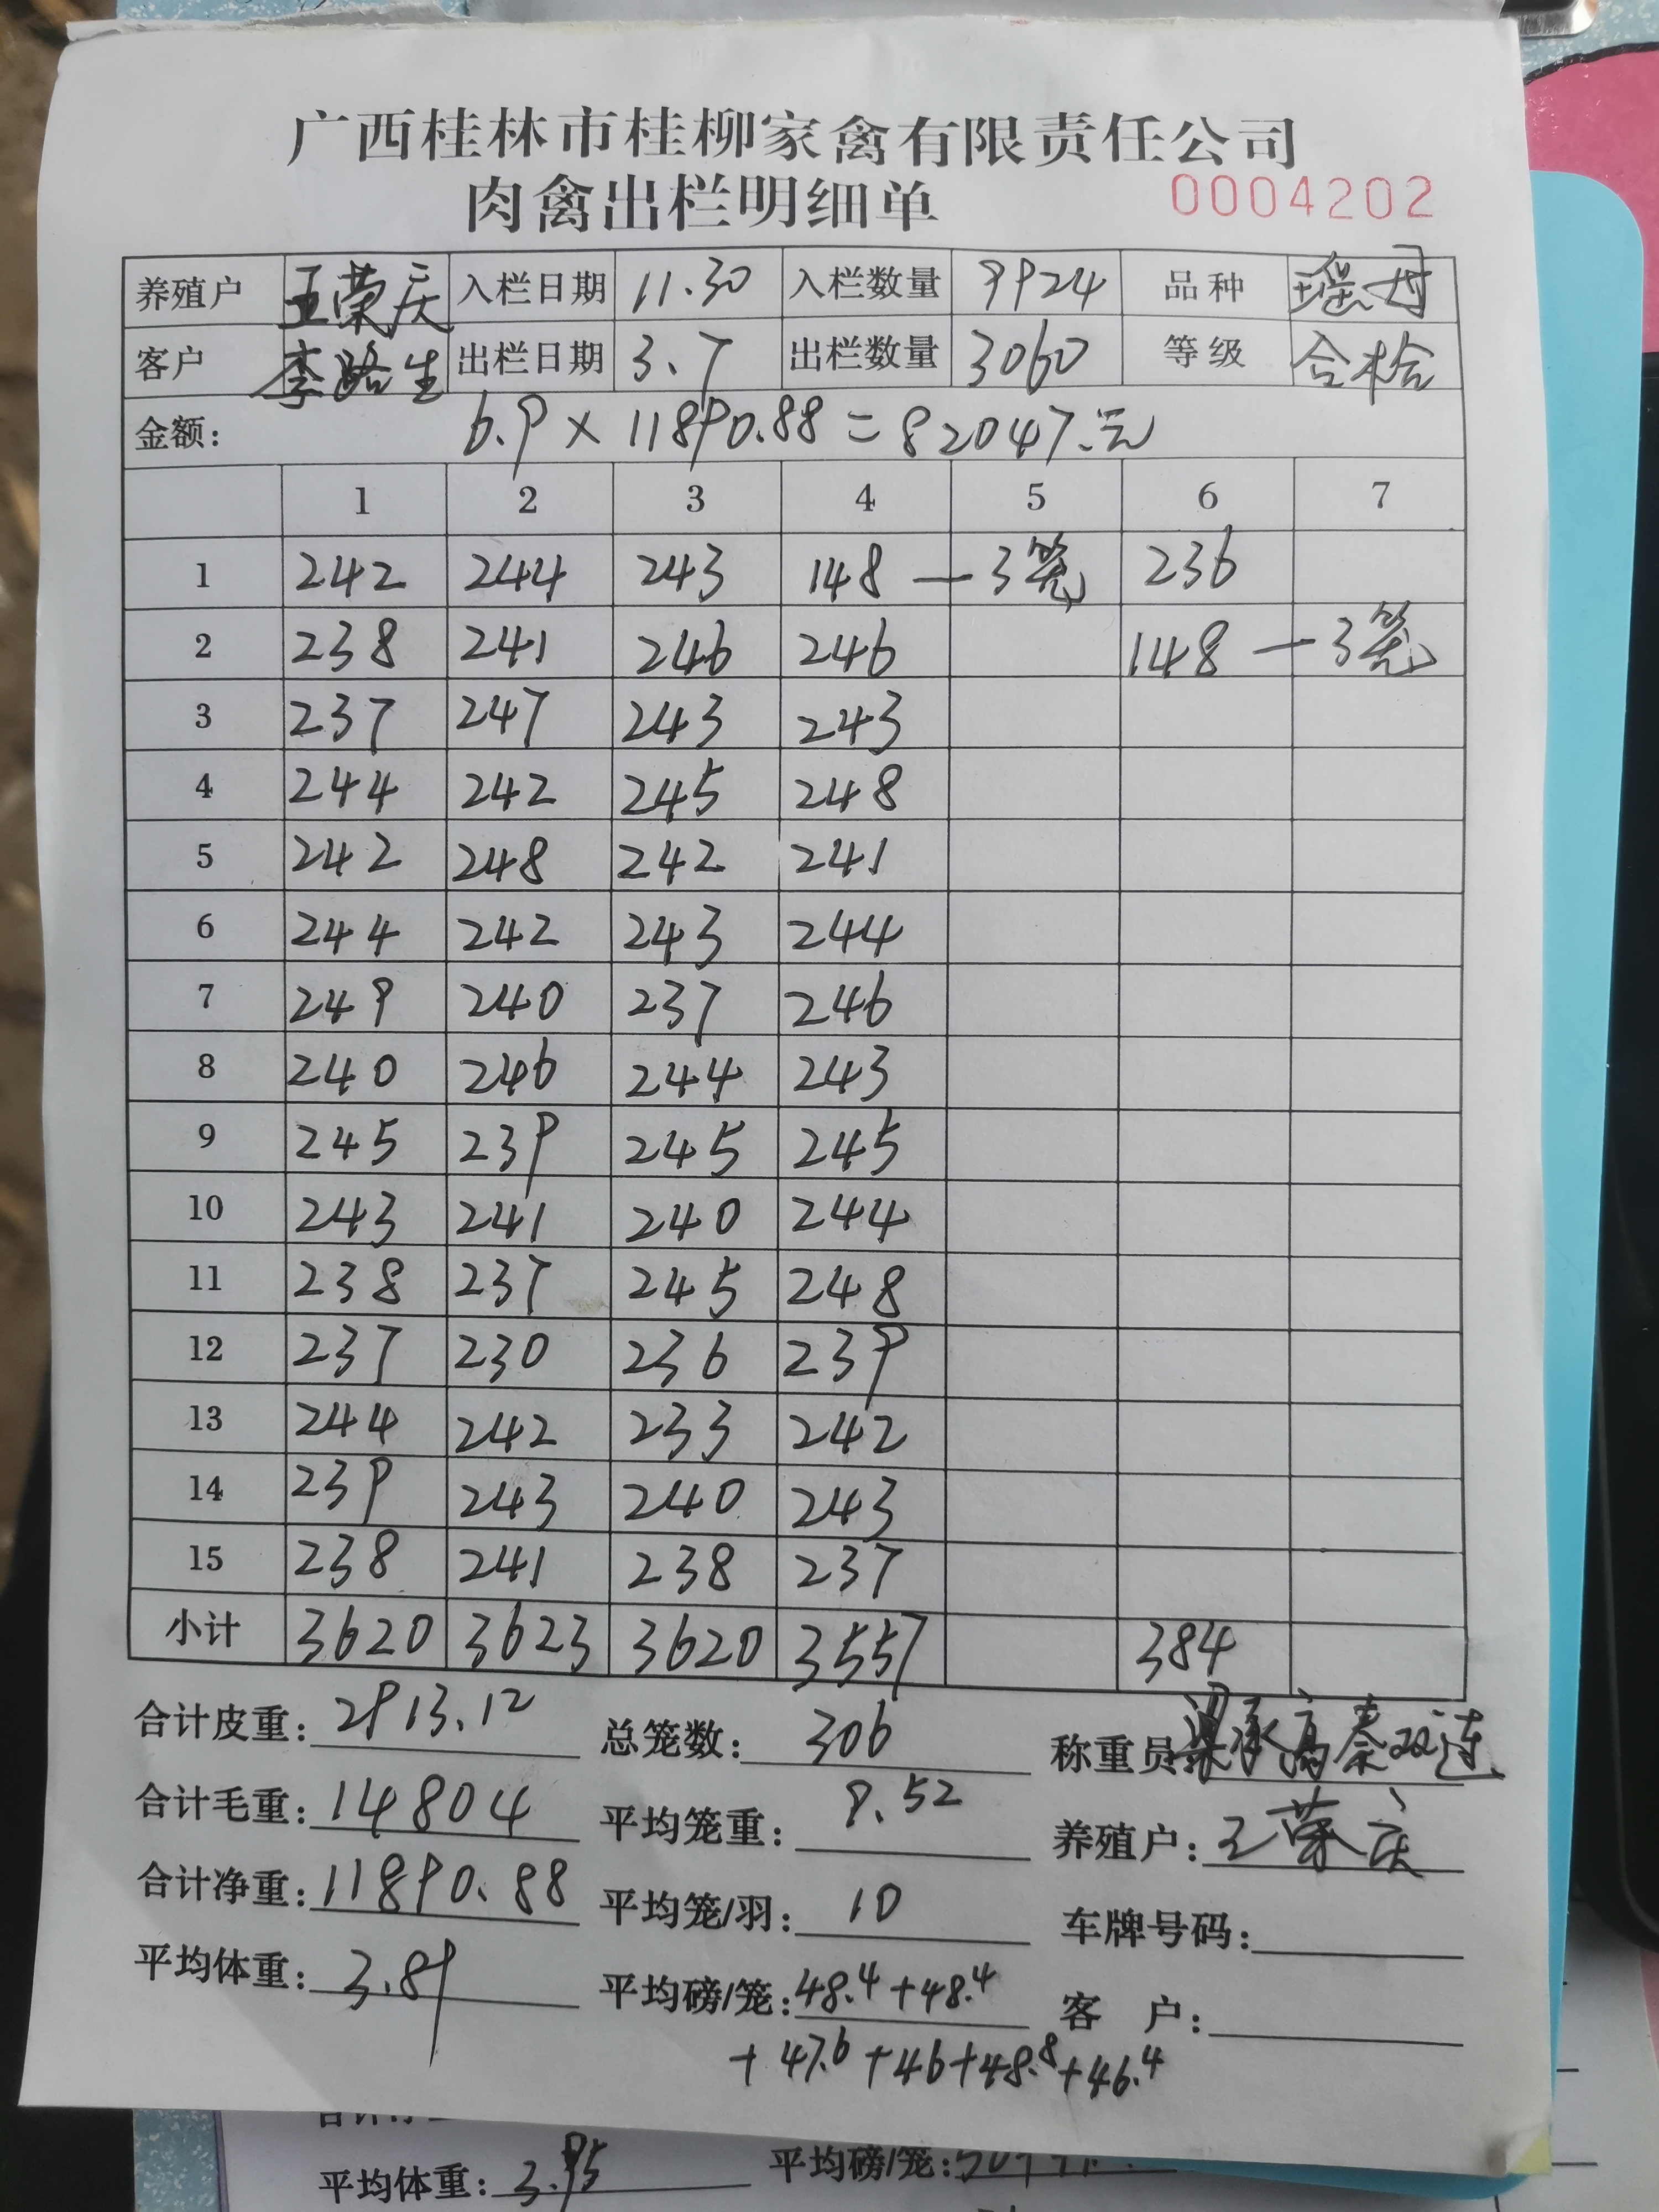 广西桂林市桂柳家禽有限责任公司
肉禽出栏明细单 0004202
养殖户 王荣庆 入栏日期 11.30 入栏数量 9924 品种 瑶丹
客户 李路生 出栏日期 3.7 出栏数量 3060 等级 合格
金额: 6.9 × 11890.88 = 82047.元
1 2 3 4 5 6 7
1 242 244 243 148 — 3笼 236
2 238 241 246 246 148 — 3笼
3 237 247 243 243
4 244 242 245 248
5 242 248 242 241
6 244 242 243 244
7 249 240 237 246
8 240 246 244 243
9 245 239 245 245
10 243 241 240 244
11 238 237 245 248
12 237 230 236 239
13 244 242 233 242
14 239 243 240 243
15 238 241 238 237
小计 3620 3623 3620 3557 384
合计皮重: 2913.12 总笼数: 306 称重员 梁承高秦双连
合计毛重: 14804 平均笼重: 9.52 养殖户: 王荣庆
合计净重: 11890.88 平均笼/羽: 10 车牌号码:
平均体重: 3.89 平均磅/笼: 48.4+48.4 客 户:
+47.6+46+48.8+46.4
平均体重: 3.95 平均磅/笼: